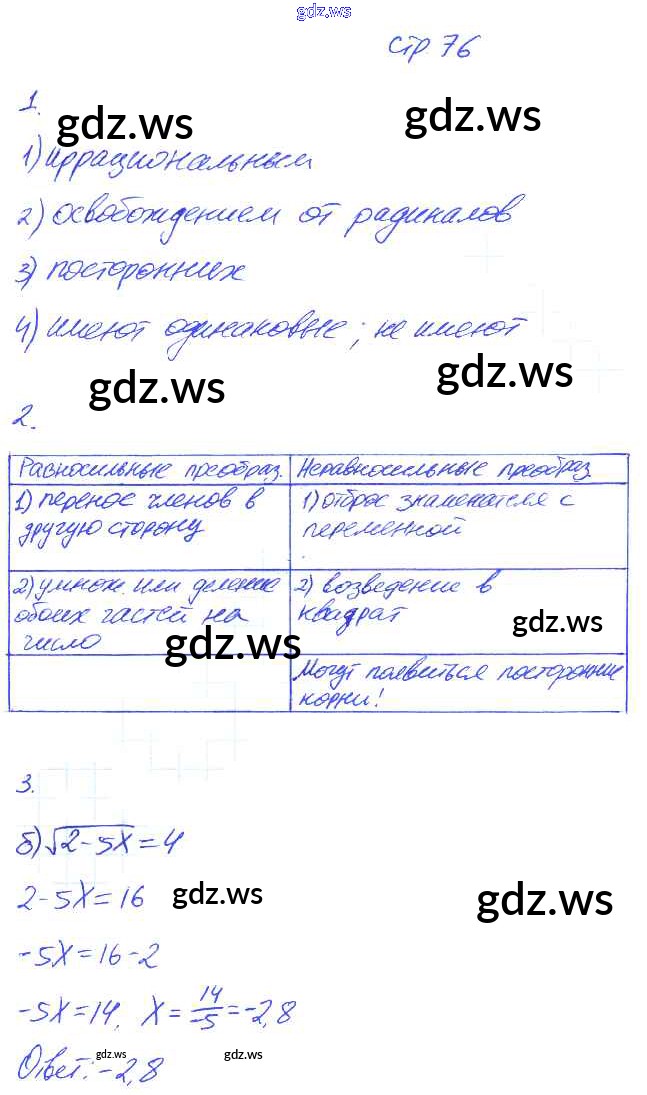 gdz.ws
стр 76
1.
gdz.ws gdz.ws
1) иррациональным
2) освобождением от радикалов
3) посторонних
4) имеют одинаковые; не имеют
gdz.ws gdz.ws
2.
Равносильные преобраз. Неравносильные преобраз
1) перенос членов в другую сторону
1) отброс знаменателя с переменной
2) умнож. или деление обоих частей на число
2) возведение в квадрат
gdz.ws gdz.ws
Могут появиться посторонние корни!
3.
б) √2-5X = 4
2-5X = 16
gdz.ws gdz.ws
-5X = 16-2
-5X = 14, X = 14/-5 = -2,8
Ответ: -2,8
gdz.ws gdz.ws